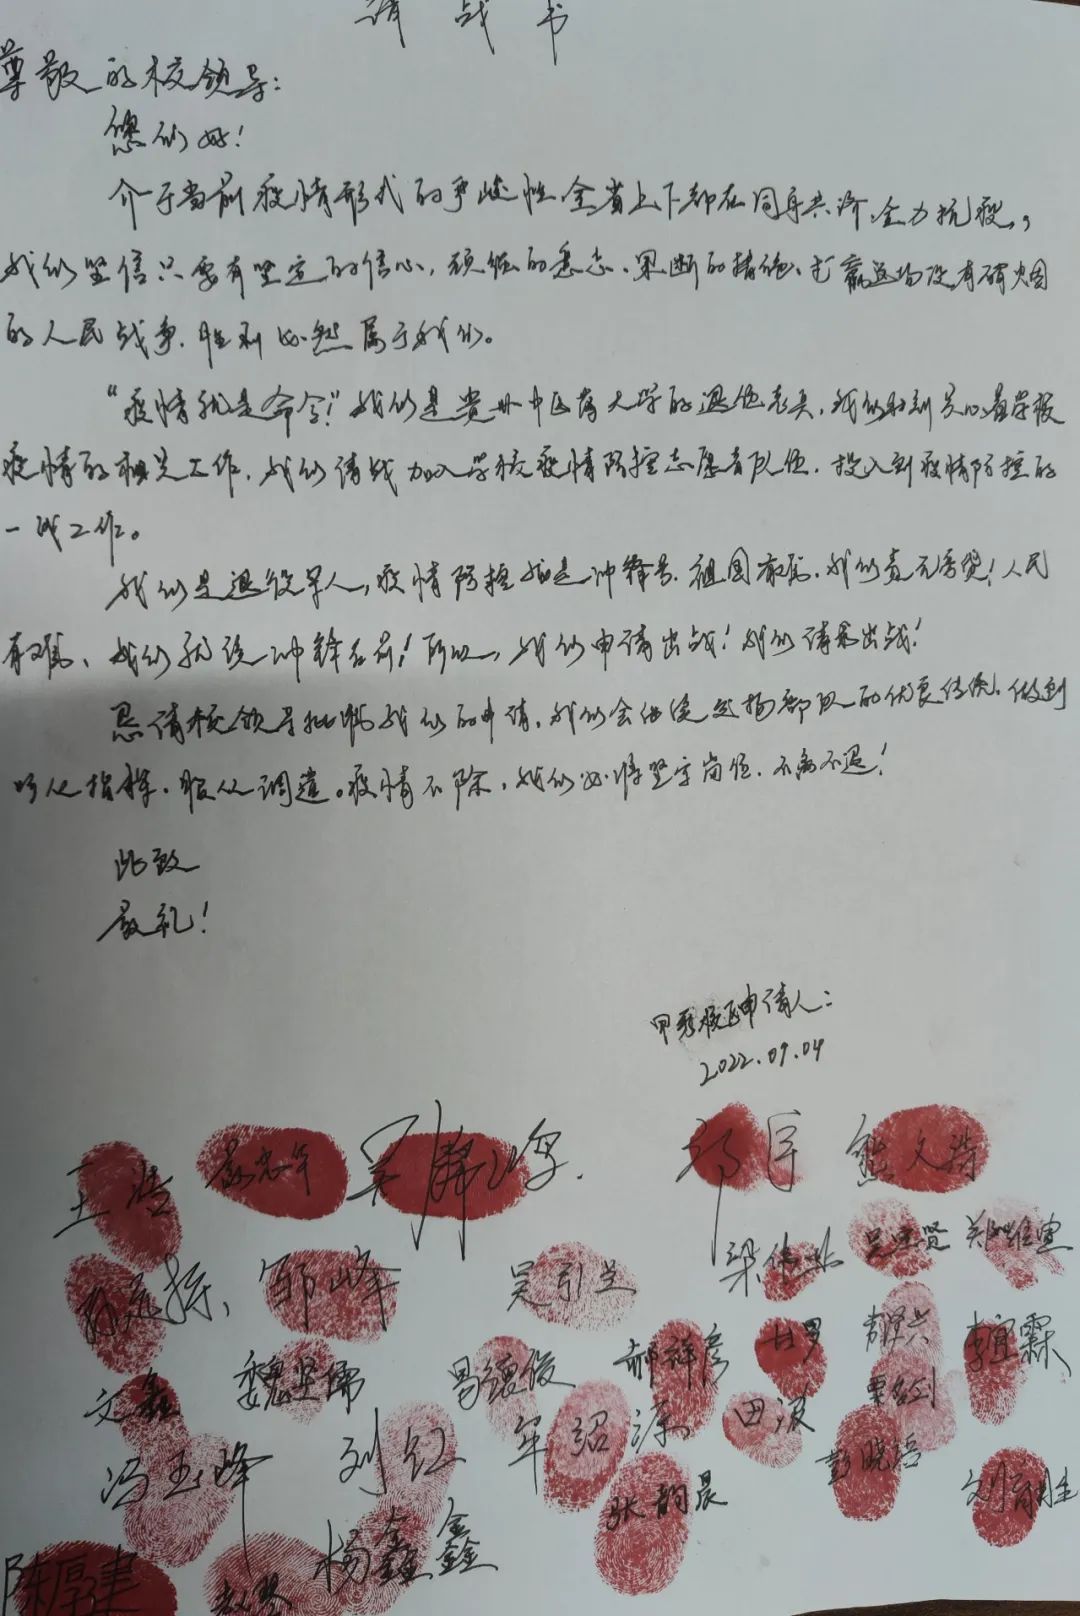 请战书
尊敬的校领导：
您们好！
介于当前疫情形式的严峻性，全省上下都在同舟共济、全力抗疫，，
我们坚信只要有坚定的信心、顽强的意志、果断的措施、打赢这场没有硝烟
的人民战争、胜利必然属于我们。
“疫情就是命令！”我们是贵州中医药大学的退伍老兵，我们时刻关心着学校
疫情的相关工作，我们请战加入学校疫情防控志愿者队伍，投入到疫情防控的
一线工作。
我们是退役军人，疫情防控就是冲锋号、祖国有难，我们责无旁贷！人民
有难、我们就该冲锋在前！所以，我们申请出战！我们请求出战！
恳请校领导批准我们的申请，我们会继续发扬部队的优良传统、做到
听从指挥、服从调遣。疫情不除，我们必将坚守岗位、不离不退！
此致
敬礼！
甲秀校区申请人：
2022.09.04
王浩 熊文涛
邹峰 吴引兰 梁伟
文鑫 魏坚儒 易镶俊 郝祥彦 甘罗 李宜霖
冯玉峰 刘红 牟绍源 田波 彭晓培
张韵晨
陈厚建 杨鑫鑫